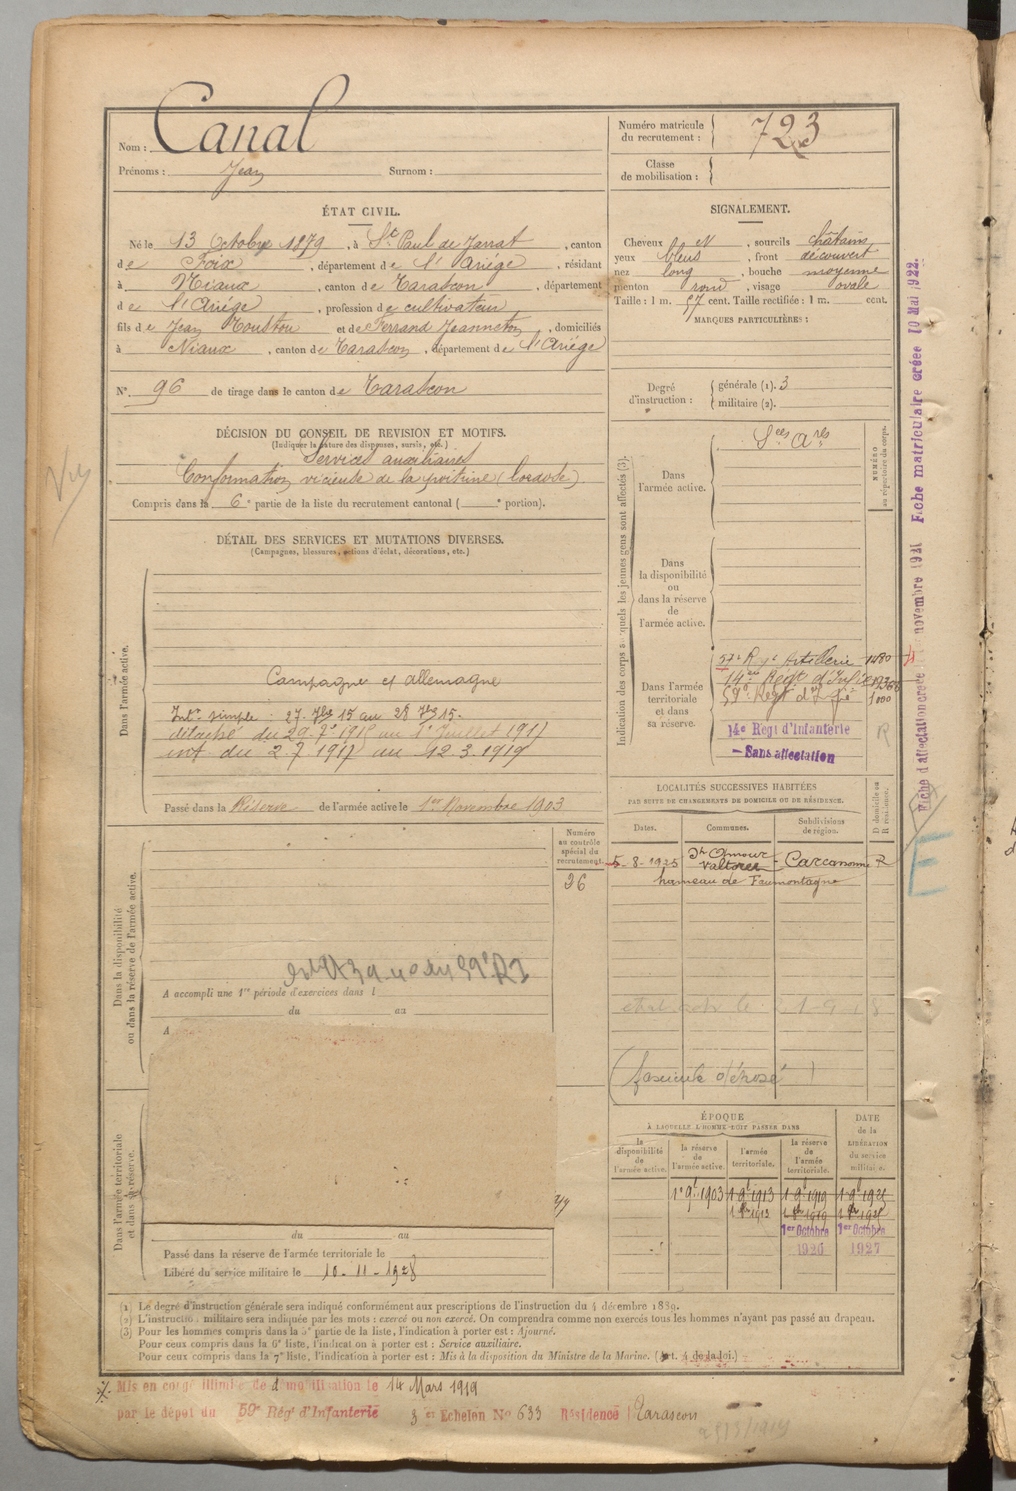 Nom : Canal
Prénoms : Jean Surnom :
Numéro matricule du recrutement : 723
Classe de mobilisation :
ÉTAT CIVIL.
Né le 13 Octobre 1879, à St Paul de Jarrat, canton
de Foix, département de l'Ariége, résidant
à Niaux, canton de Tarascon, département
de l'Ariége, profession de cultivateur
fils de Jean Toustou et de Ferrand Jeanneton, domiciliés
à Niaux, canton de Tarascon, département de l'Ariége
N° 96 de tirage dans le canton de Tarascon
SIGNALEMENT.
Cheveux N, sourcils châtains
yeux bleus, front découvert
nez long, bouche moyenne
menton rond, visage ovale
Taille : 1 m. 57 cent. Taille rectifiée : 1 m. cent.
MARQUES PARTICULIÈRES :
Degré d'instruction : générale (1). 3
militaire (2).
DÉCISION DU CONSEIL DE REVISION ET MOTIFS.
(Indiquer la nature des dispenses, sursis, etc.)
Services auxiliaires
Conformation vicieuse de la poitrine (Lordose)
Compris dans la 6e partie de la liste du recrutement cantonal ( e portion).
DÉTAIL DES SERVICES ET MUTATIONS DIVERSES.
(Campagnes, blessures, actions d'éclat, décorations, etc.)
Dans l'armée active.
Campagne c/ Allemagne
Intr simple : 27. 7bre 15 au 28 7bre 15.
détaché du 29.7e 1915 au 1er Juillet 1917
int du 2.7.1917 au 12.3.1919
Passé dans la Réserve de l'armée active le 1er Novembre 1903
Dans la disponibilité ou dans la réserve de l'armée active.
Numéro au contrôle spécial du recrutement.
26
A accompli une 1re période d'exercices dans l
du au
A
Dans l'armée territoriale et dans sa réserve.
du au
Passé dans la réserve de l'armée territoriale le
Libéré du service militaire le 10-11-1928
Indication des corps auxquels les jeunes gens sont affectés (3).
NUMÉRO au répertoire du corps.
Dans l'armée active.
Sces Ares
Dans la disponibilité ou dans la réserve de l'armée active.
Dans l'armée territoriale et dans sa réserve.
57e R gt Artillerie 1480
14e Regt d'Infie
59e Regt d'Ifie 1000
14e Régt d'Infanterie R
Sans affectation
LOCALITÉS SUCCESSIVES HABITÉES
PAR SUITE DE CHANGEMENTS DE DOMICILE OU DE RÉSIDENCE.
Dates. Communes. Subdivisions de région. D domicile ou R résidence.
5-8-1925 St Amour Valtoret Carcassonne R
hameau de Faumontagne
(fascicule déposé)
ÉPOQUE
À LAQUELLE L'HOMME DOIT PASSER DANS
DATE de la LIBÉRATION du service militaire.
la disponibilité de l'armée active. la réserve de l'armée active. l'armée territoriale. la réserve de l'armée territoriale.
1er 9bre 1903 1 9bre 1913 1 9bre 1919 1 9bre 1925
1er Octobre 1926 1er Octobre 1927
(1) Le degré d'instruction générale sera indiqué conformément aux prescriptions de l'instruction du 4 décembre 1889.
(2) L'instruction militaire sera indiquée par les mots : exercé ou non exercé. On comprendra comme non exercés tous les hommes n'ayant pas passé au drapeau.
(3) Pour les hommes compris dans la 5e partie de la liste, l'indication à porter est : Ajourné.
Pour ceux compris dans la 6e liste, l'indication à porter est : Service auxiliaire.
Pour ceux compris dans la 7e liste, l'indication à porter est : Mis à la disposition du Ministre de la Marine. (Art. 4 de la loi.)
Mis en congé illimité de démobilisation le 14 Mars 1919
par le dépot du 59e Rég't d'Infanterie 3 er Echelon No 633 Résidence Tarascon
Fiche d'affectation créée novembre 1921 Fiche matriculaire créée 10 Mai 1922.
Vu